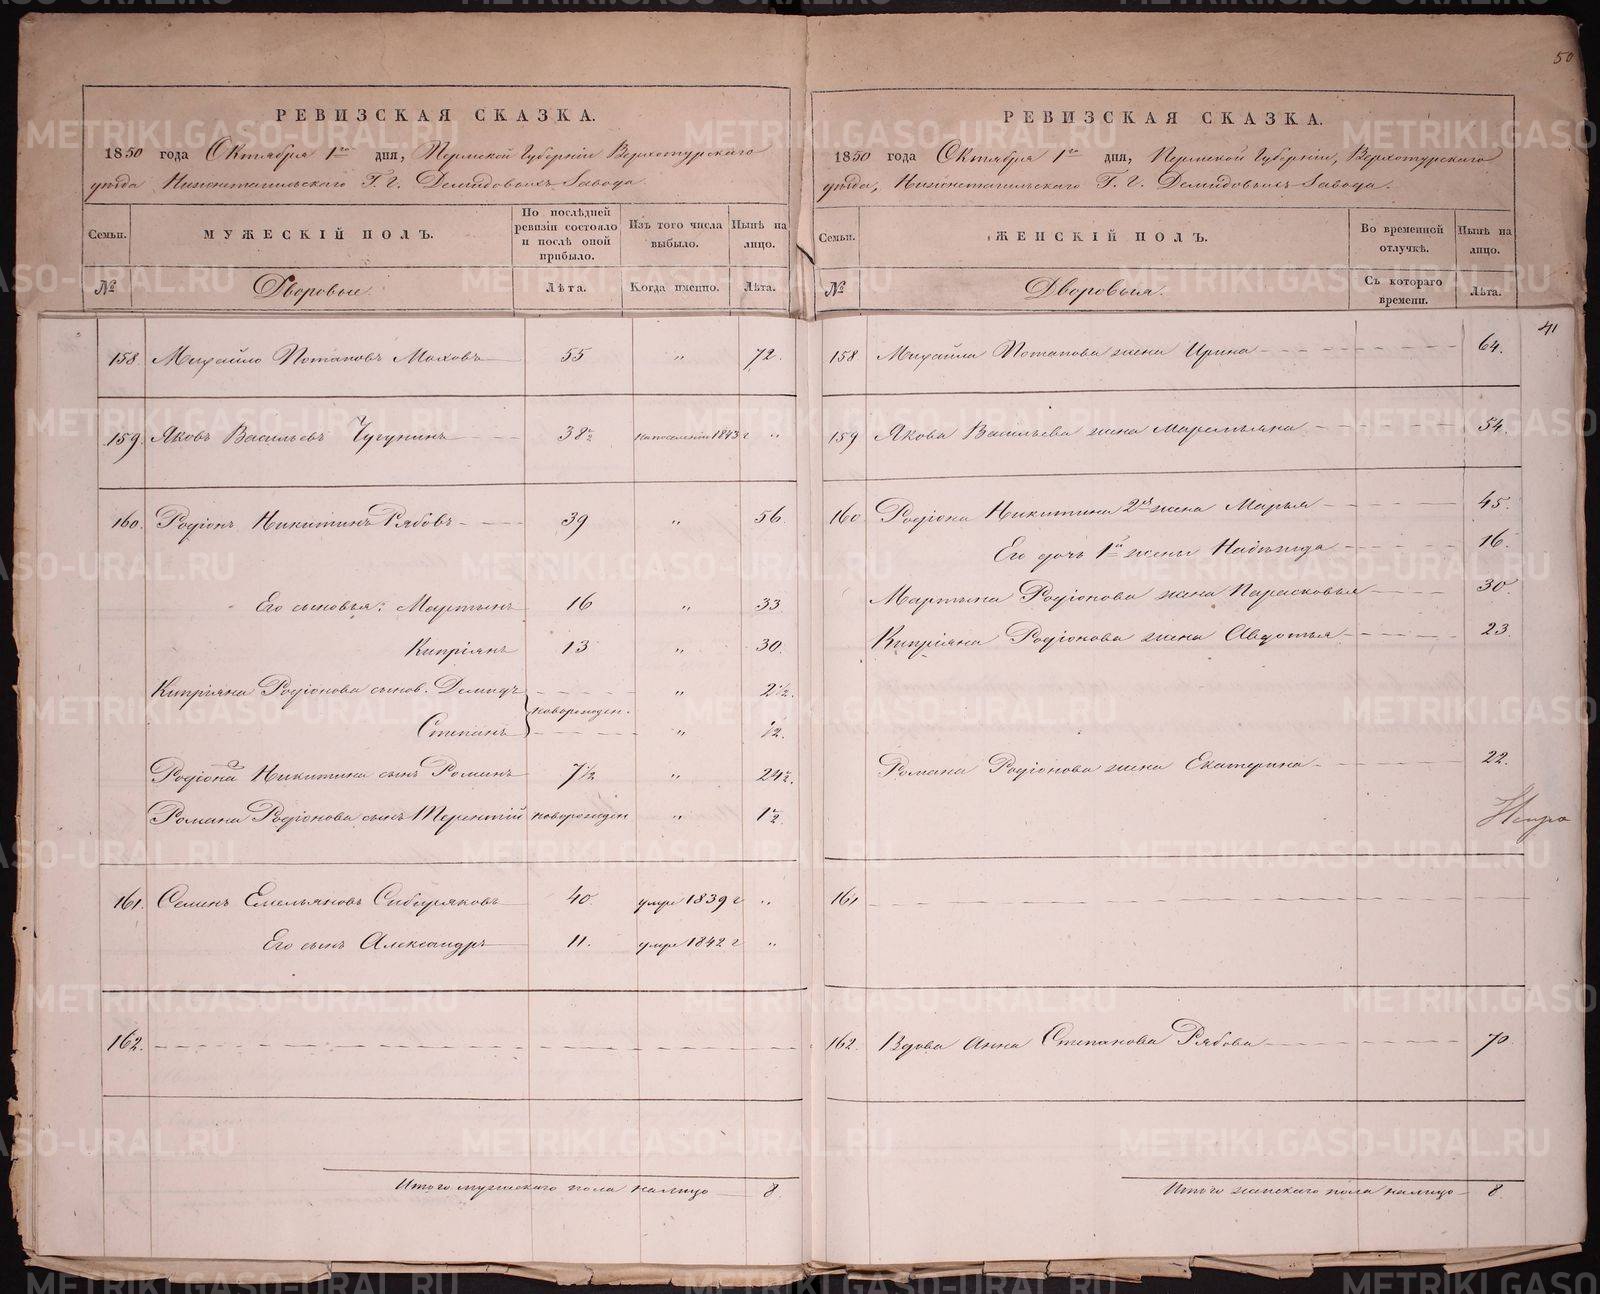 50
РЕВИЗСКАЯ СКАЗКА.
1850 года Октября 1го дня, Пермской Губерніи Верхотурскаго
уѣзда Нижнетагильскаго Г. Г. Демидовыхъ Завода.
Семьи. МУЖЕСКІЙ ПОЛЪ. По послѣдней ревизіи состояло и послѣ оной прибыло. Изъ того числа выбыло. Нынѣ на лицо.
№ Дворовые. Лѣта. Когда именно. Лѣта.
158 Михайло Потаповъ Маховъ 55 " 72.
159. Яковъ Васильевъ Чугунинъ 38½ 1843 г "
160. Родіонъ Никитинъ Рябовъ 39 " 56.
Его сыновья: Мартынъ 16 " 33
Кипріянъ 13 " 30.
Кипріяна Родіонова сынов. Демидъ новорожден. " 2½.
Степанъ " ½.
Родіона Никитина сынъ Романъ 7½ " 24½.
Романа Родіонова сынъ Терентій новорожден " 1½.
161. Семенъ Емельяновъ Сибиряковъ 40. умре 1839 г "
Его сынъ Александръ 11. умре 1842 г "
162.
Итого мужескаго пола налицо 8.
РЕВИЗСКАЯ СКАЗКА.
1850 года Октября 1го дня, Пермской Губерніи, Верхотурскаго
уѣзда, Нижнетагильскаго Г. Г. Демидовыхъ Завода.
Семьи. ЖЕНСКІЙ ПОЛЪ. Во временной отлучкѣ. Нынѣ на лицо.
№ Дворовыя. Съ котораго времени. Лѣта.
41
158 Михайла Потапова жена Ирина 64.
159 Якова Васильева жена Маремьяна 54.
160 Родіона Никитина 2я жена Марья 45.
Его дочь 1й жены Надежда 16.
Мартына Родіонова жена Парасковья 30.
Кипріяна Родіонова жена Авдотья 23.
Романа Родіонова жена Екатерина 22.
161
162. Вдова Анна Степанова Рябова 70.
Итого женскаго пола налицо 8.
METRIKI.GASO-URAL.RU